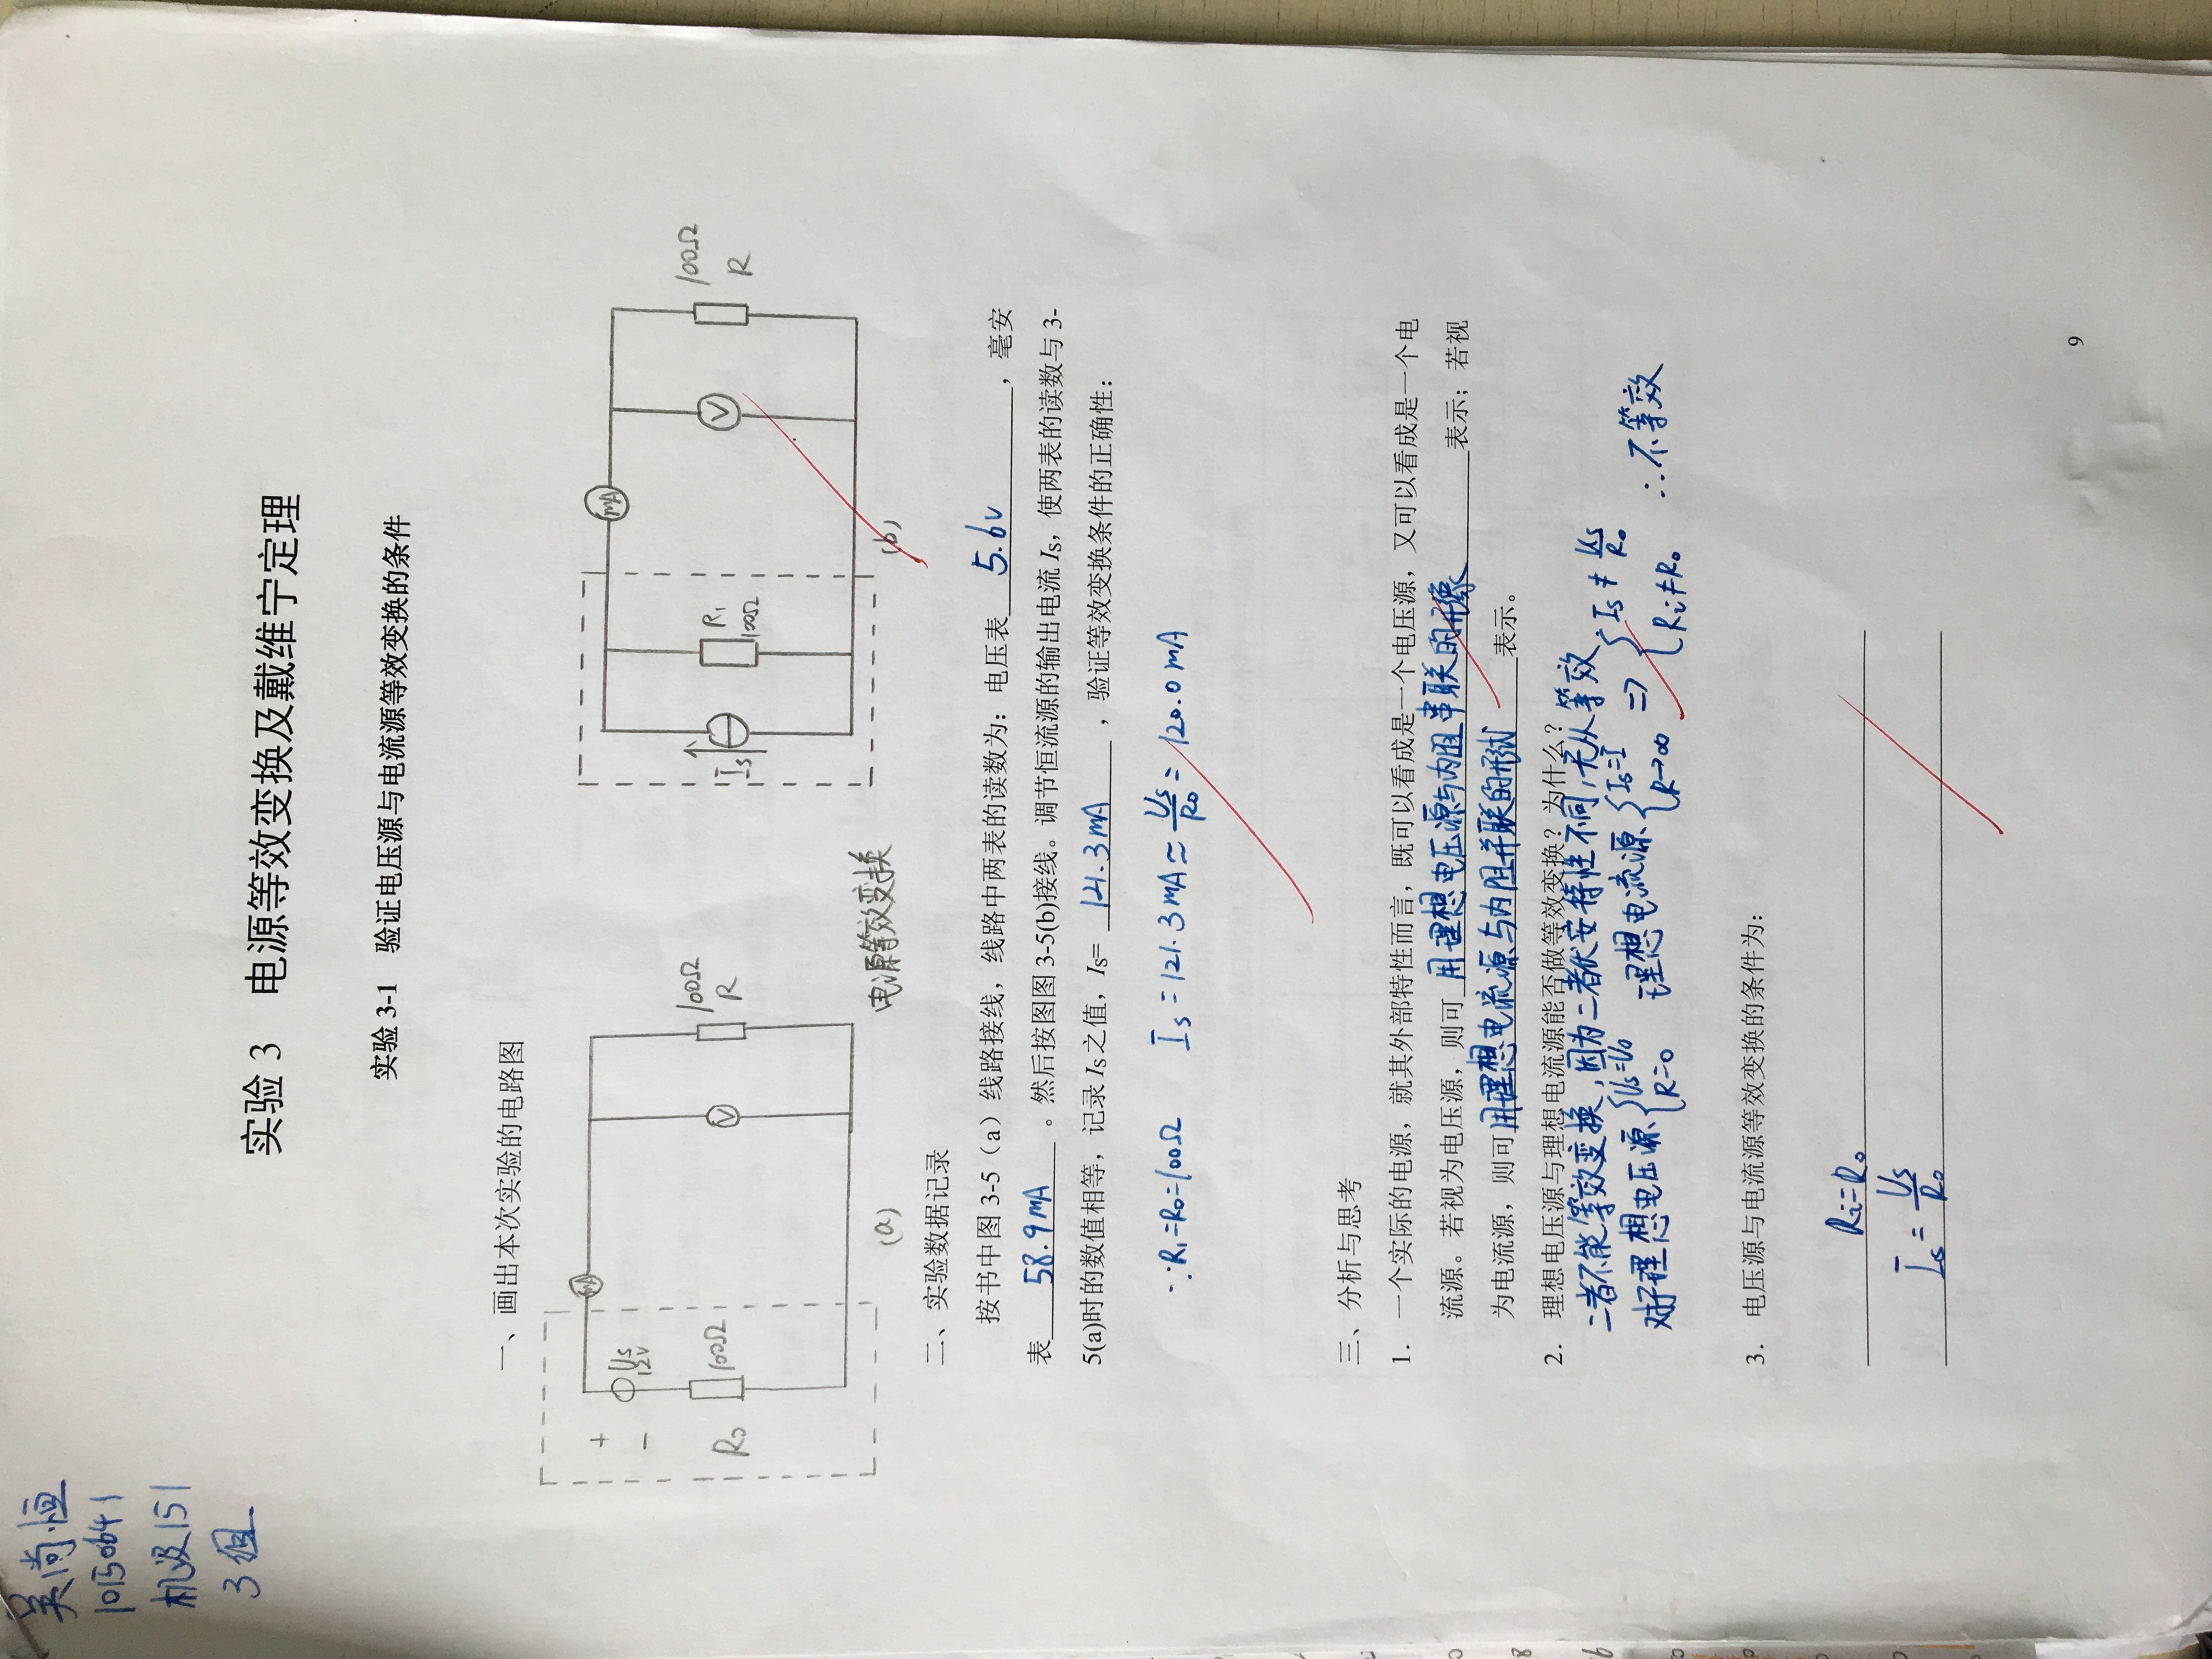 吴尚恒
10150641
机设151
3组
实验 3 电源等效变换及戴维宁定理
实验 3-1 验证电压源与电流源等效变换的条件
一、画出本次实验的电路图
mA
+
-
Us
12V
R₀
100Ω
V
100Ω
R
(a)
电源等效变换
mA
Is
R₁
100Ω
V
100Ω
R
(b)
二、实验数据记录
按书中图 3-5（a）线路接线，线路中两表的读数为：电压表 5.6V ，毫安
表 58.9mA 。然后按图图 3-5(b)接线。调节恒流源的输出电流 Is，使两表的读数与 3-
5(a)时的数值相等，记录 Is 之值，Is= 121.3mA ，验证等效变换条件的正确性：
∵R₁=R₀=100Ω Is=121.3mA≈Us/R₀=120.0mA
三、分析与思考
1. 一个实际的电源，就其外部特性而言，既可以看成是一个电压源，又可以看成是一个电
流源。若视为电压源，则可 用理想电压源与内阻串联的形式 表示；若视
为电流源，则可 用理想电流源与内阻并联的形式 表示。
2. 理想电压源与理想电流源能否做等效变换？为什么？
二者不能等效变换，因为二者伏安特性不同，无从等效
对于理想电压源{Us=U₀ R=0 理想电流源{Is=I R→∞ ⇒ {Is≠Us/R₀ Ri≠R₀ ∴不等效
3. 电压源与电流源等效变换的条件为：
Ri=R₀
Is=Us/R₀
9